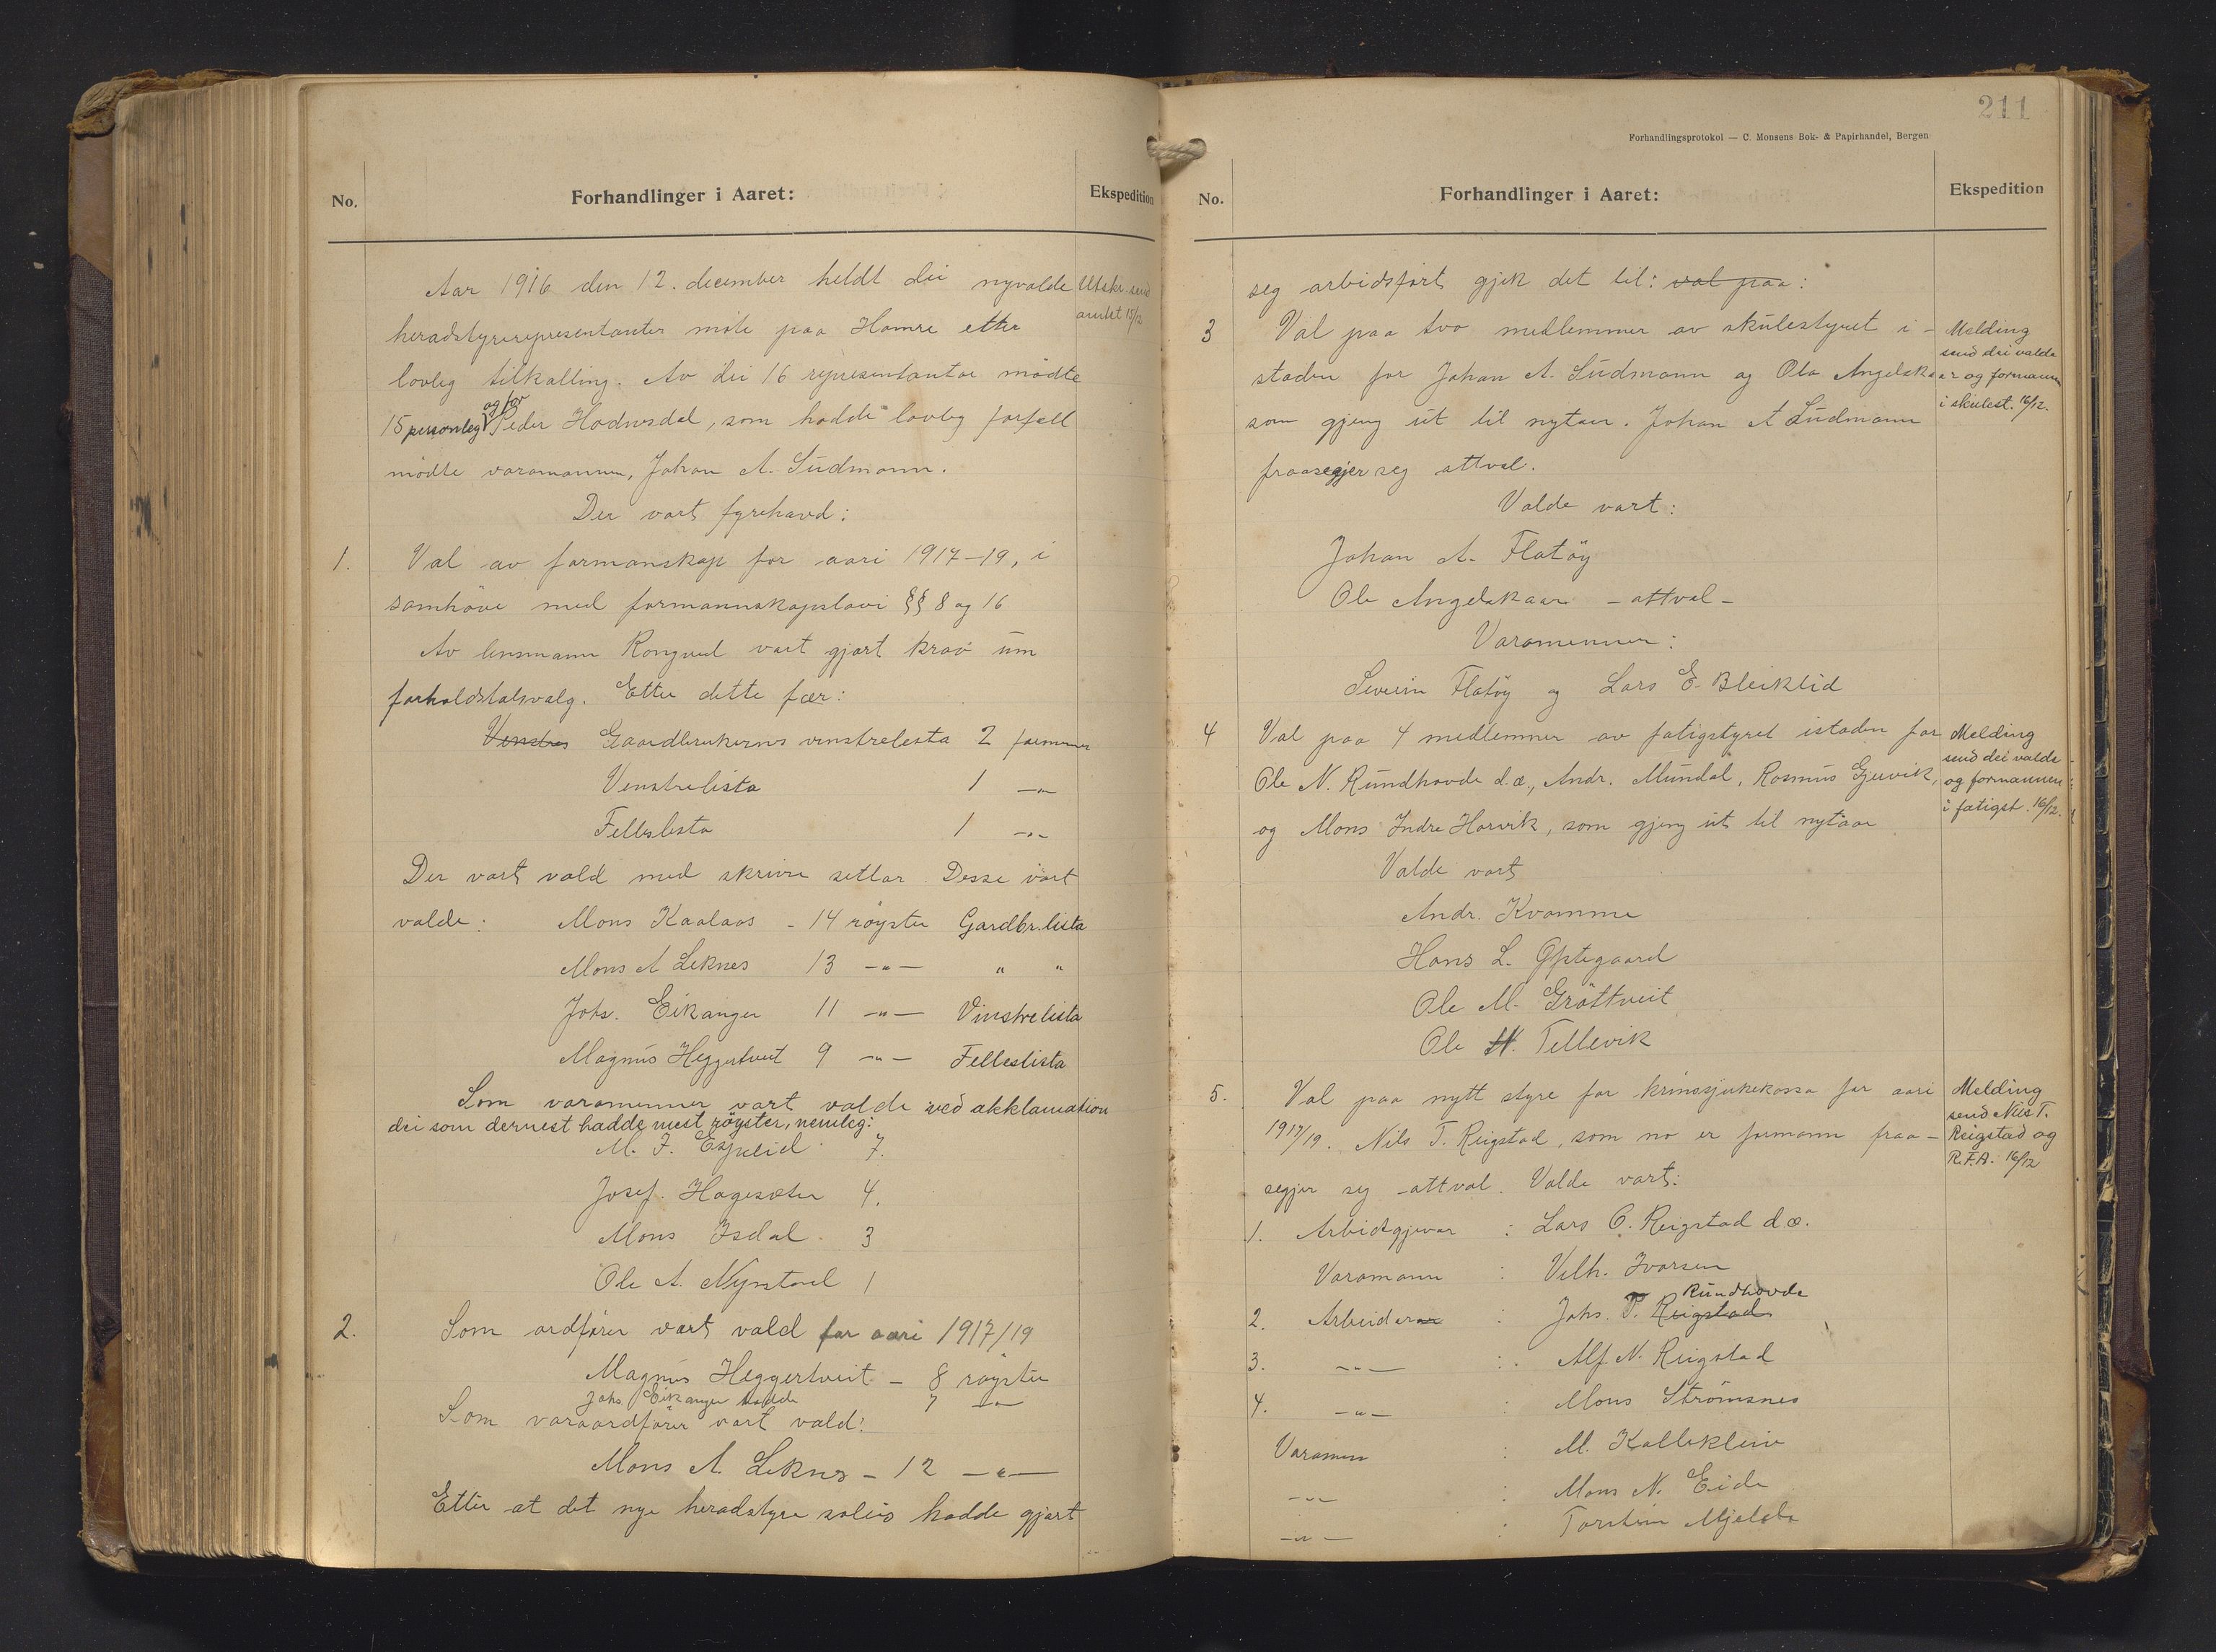 No.
Forhandlinger i Aaret:
Ekspedition
Aar 1916 den 12. december heldt dei nyvalde
Utskr. send
amtet 15/12
heradstyrerepresentanter møte paa Hamre etter
lovleg tilkalling. Av dei 16 representantar mødte
og for
15 personleg Peder Hodnesdal, som hadde lovleg forfall
mødte varamannen, Johan A. Südmann.
Der vart fyrehavd:
1.
Val av formanskap for aari 1917-19, i
samhøve med formannskapslovi §§ 8 og 16
Av lensmann Rongved vart gjort krav um
forholdstalsvalg. Etter dette fær:
Venstres Gaardbrukernes venstrelista 2 formenn
Venstrelista 1 -"-
Felleslista 1 -"-
Der vart vald med skrivne setlar. Desse vart
valde: Mons Kaalaas - 14 røyster Gardbr.lista
Mons A Leknes 13 -"- " "
Johs. Eikanger 11 -"- Vinstrelista
Magnus Heggertveit 9 -"- Felleslista
Som varamenner vart valde ved akklamation
dei som dernest hadde mest røyster, nemleg:
M. J. Espelid 7.
Josef. Hagesæter 4.
Mons Isdal. 3
Ole A. Nyrstad 1
2.
Som ordfører vart vald for aari 1917/19
Magnus Heggertveit - 8 røyster
Johs Eikanger hadde 7 -"-
Som varaordfører vart vald:
Mons A. Leknes - 12 -"-
Etter at det nye heradstyre soleis hadde gjort
211
Forhandlingsprotokol — C. Monsens Bok- & Papirhandel, Bergen
No.
Forhandlinger i Aaret:
Ekspedition
seg arbidsført gjek det til: val paa:
3
Val paa tvo medlemmer av skulestyret i-
Melding
send dei valde
staden for Johan A. Südmann og Ola Angelska
er og formannen
i skulest. 16/12.
som gjeng ut til nytaar. Johan A Südmann
fraasegjer seg attval.
Valde vart:
Johan A. Flatøy
Ole Angelskaar - attval -
Varamenner:
Severin Flatøy og Lars E. Bleiklid
4
Val paa 4 medlemmer av fatigstyret istaden for
Melding
send dei valde
Ole N. Rundhovde d.æ., Andr. Mundal, Rasmus Gjervik,
og formannen
i fatigst. 16/12.
og Mons Indre Horvik, som gjeng ut til nytaar
Valde vart
Andr. Kvamme
Hans L. Øptegaard
Ole M. Grøttveit
Ole H. Tellevik
5.
Val paa nytt styre for krinssjukekassa for aari
Melding
send Nils T.
Reigstad og
R.F.A. 16/12
1917/19. Nils T. Reigstad, som no er formann fraa-
segjer seg attval. Valde vart:
1. Arbidsgjevar : Lars O. Reigstad d.æ.
Varamann : Vilh. Ivarsen
Rundhovde
2. Arbeiderar : Johs. P. Reigstad
3. -"- : Alf. N. Reigstad
4. -"- : Mons Strømsnes
Varamenn : M. Kalleklein
-"- : Mons N. Eide
-"- : Torstein Mjelde